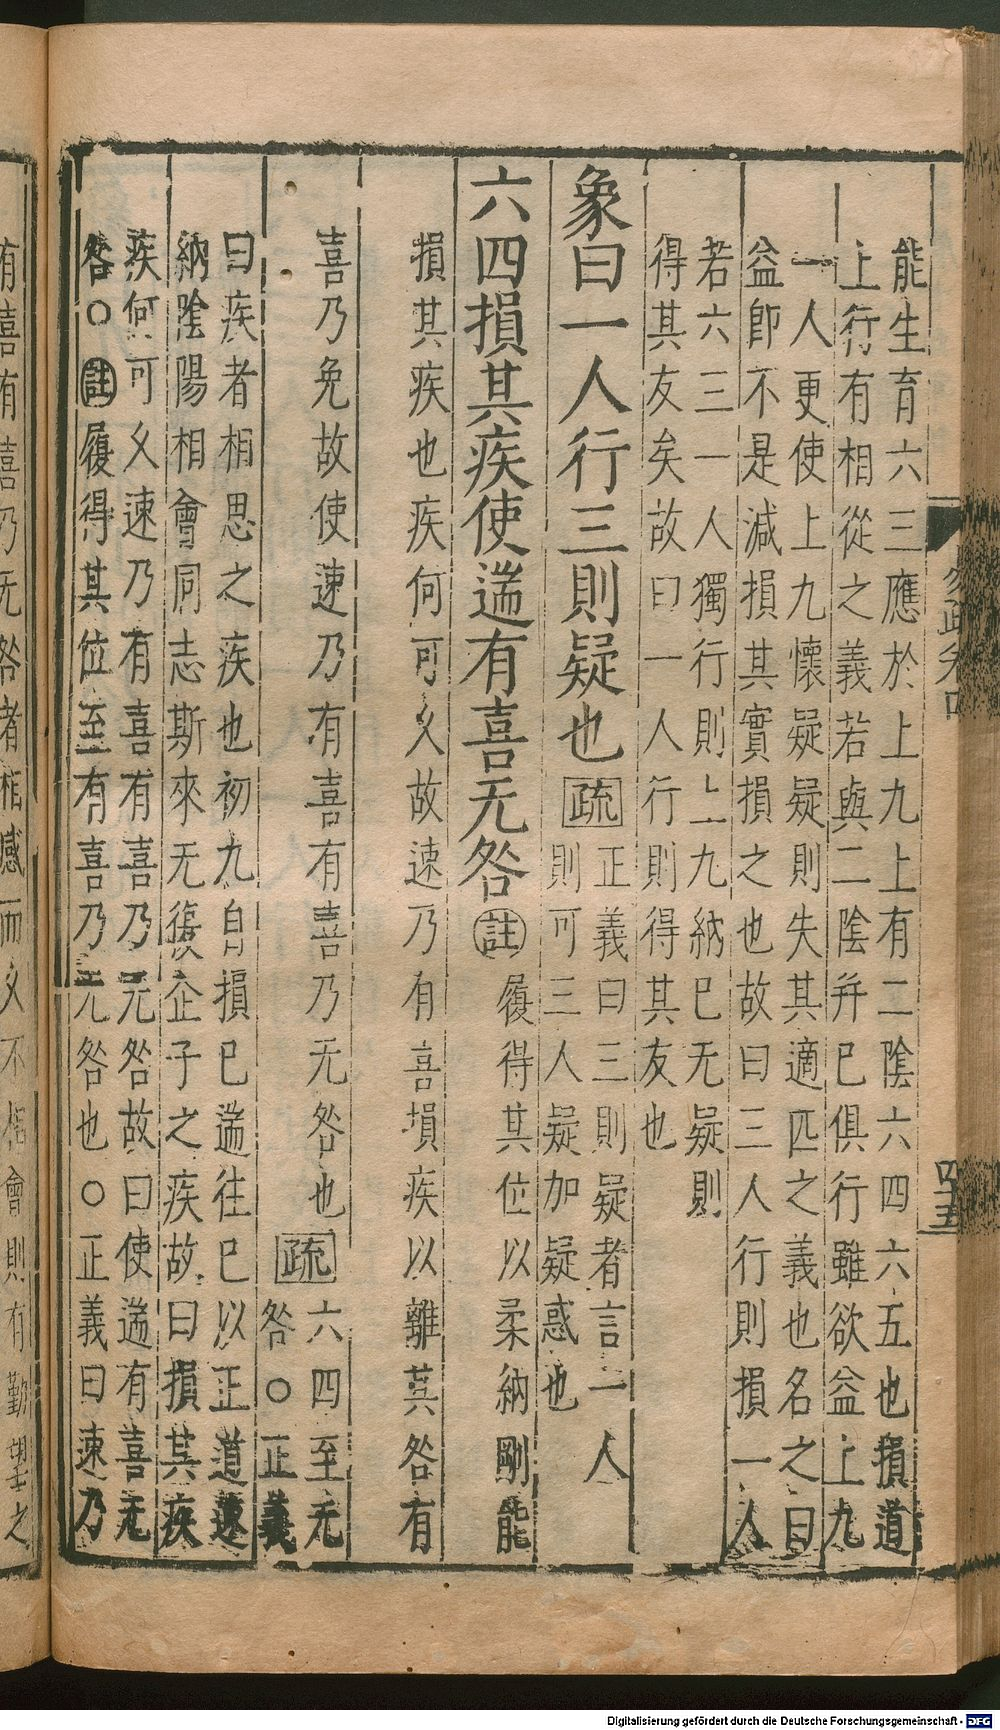 能生育六三應於上九上有二陰六四六五也損道
上行有相從之義若與二陰并已俱行雖欲益上九
一人更使上九懷疑疑則失其適匹之義也名之曰
益即不是減損其實損之也故曰三人行則損一人
若六三一人獨行則上九納已无疑則
得其友矣故曰一人行則得其友也
象曰一人行三則疑也疏
正義曰三則疑者言一人
則可三人疑加疑惑也
六四損其疾使遄有喜无咎註
履得其位以柔納剛能
損其疾也疾何可久故速乃有喜損疾以離其咎有
喜乃免故使速乃有喜有喜乃无咎也疏
六四至无
咎○正義
曰疾者相思之疾也初九自損已遄往已以正道速
納陰陽相會同志斯來无復企予之疾故曰損其疾
疾何可久速乃有喜有喜乃无咎故曰使遄有喜无
咎○註履得其位至有喜乃无咎也○正義曰速乃
有喜有喜乃无咎者相感而久不相會則有勤望之
四十五
Digitalisierung gefördert durch die Deutsche Forschungsgemeinschaft - DFG